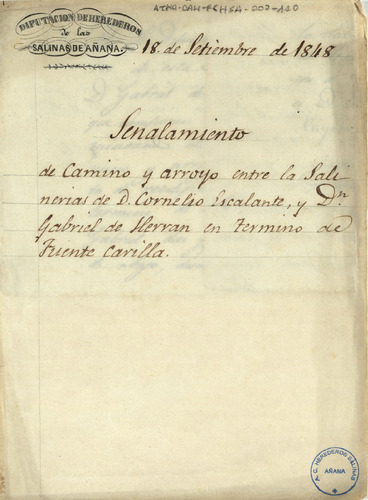 ATHA-DAH-FCHSA-002-120
DIPUTACION DE HEREDEROS
de las
SALINAS DE AÑANA.
18. de Setiembre de 1848
Senalamiento
de Camino y arroyo entre la Sali
nerias de D. Cornelio Escalante, y Dn
Gabriel de Herran en termino de
Fuente Carilla.
A. C. HEREDEROS SALINAS
AÑANA